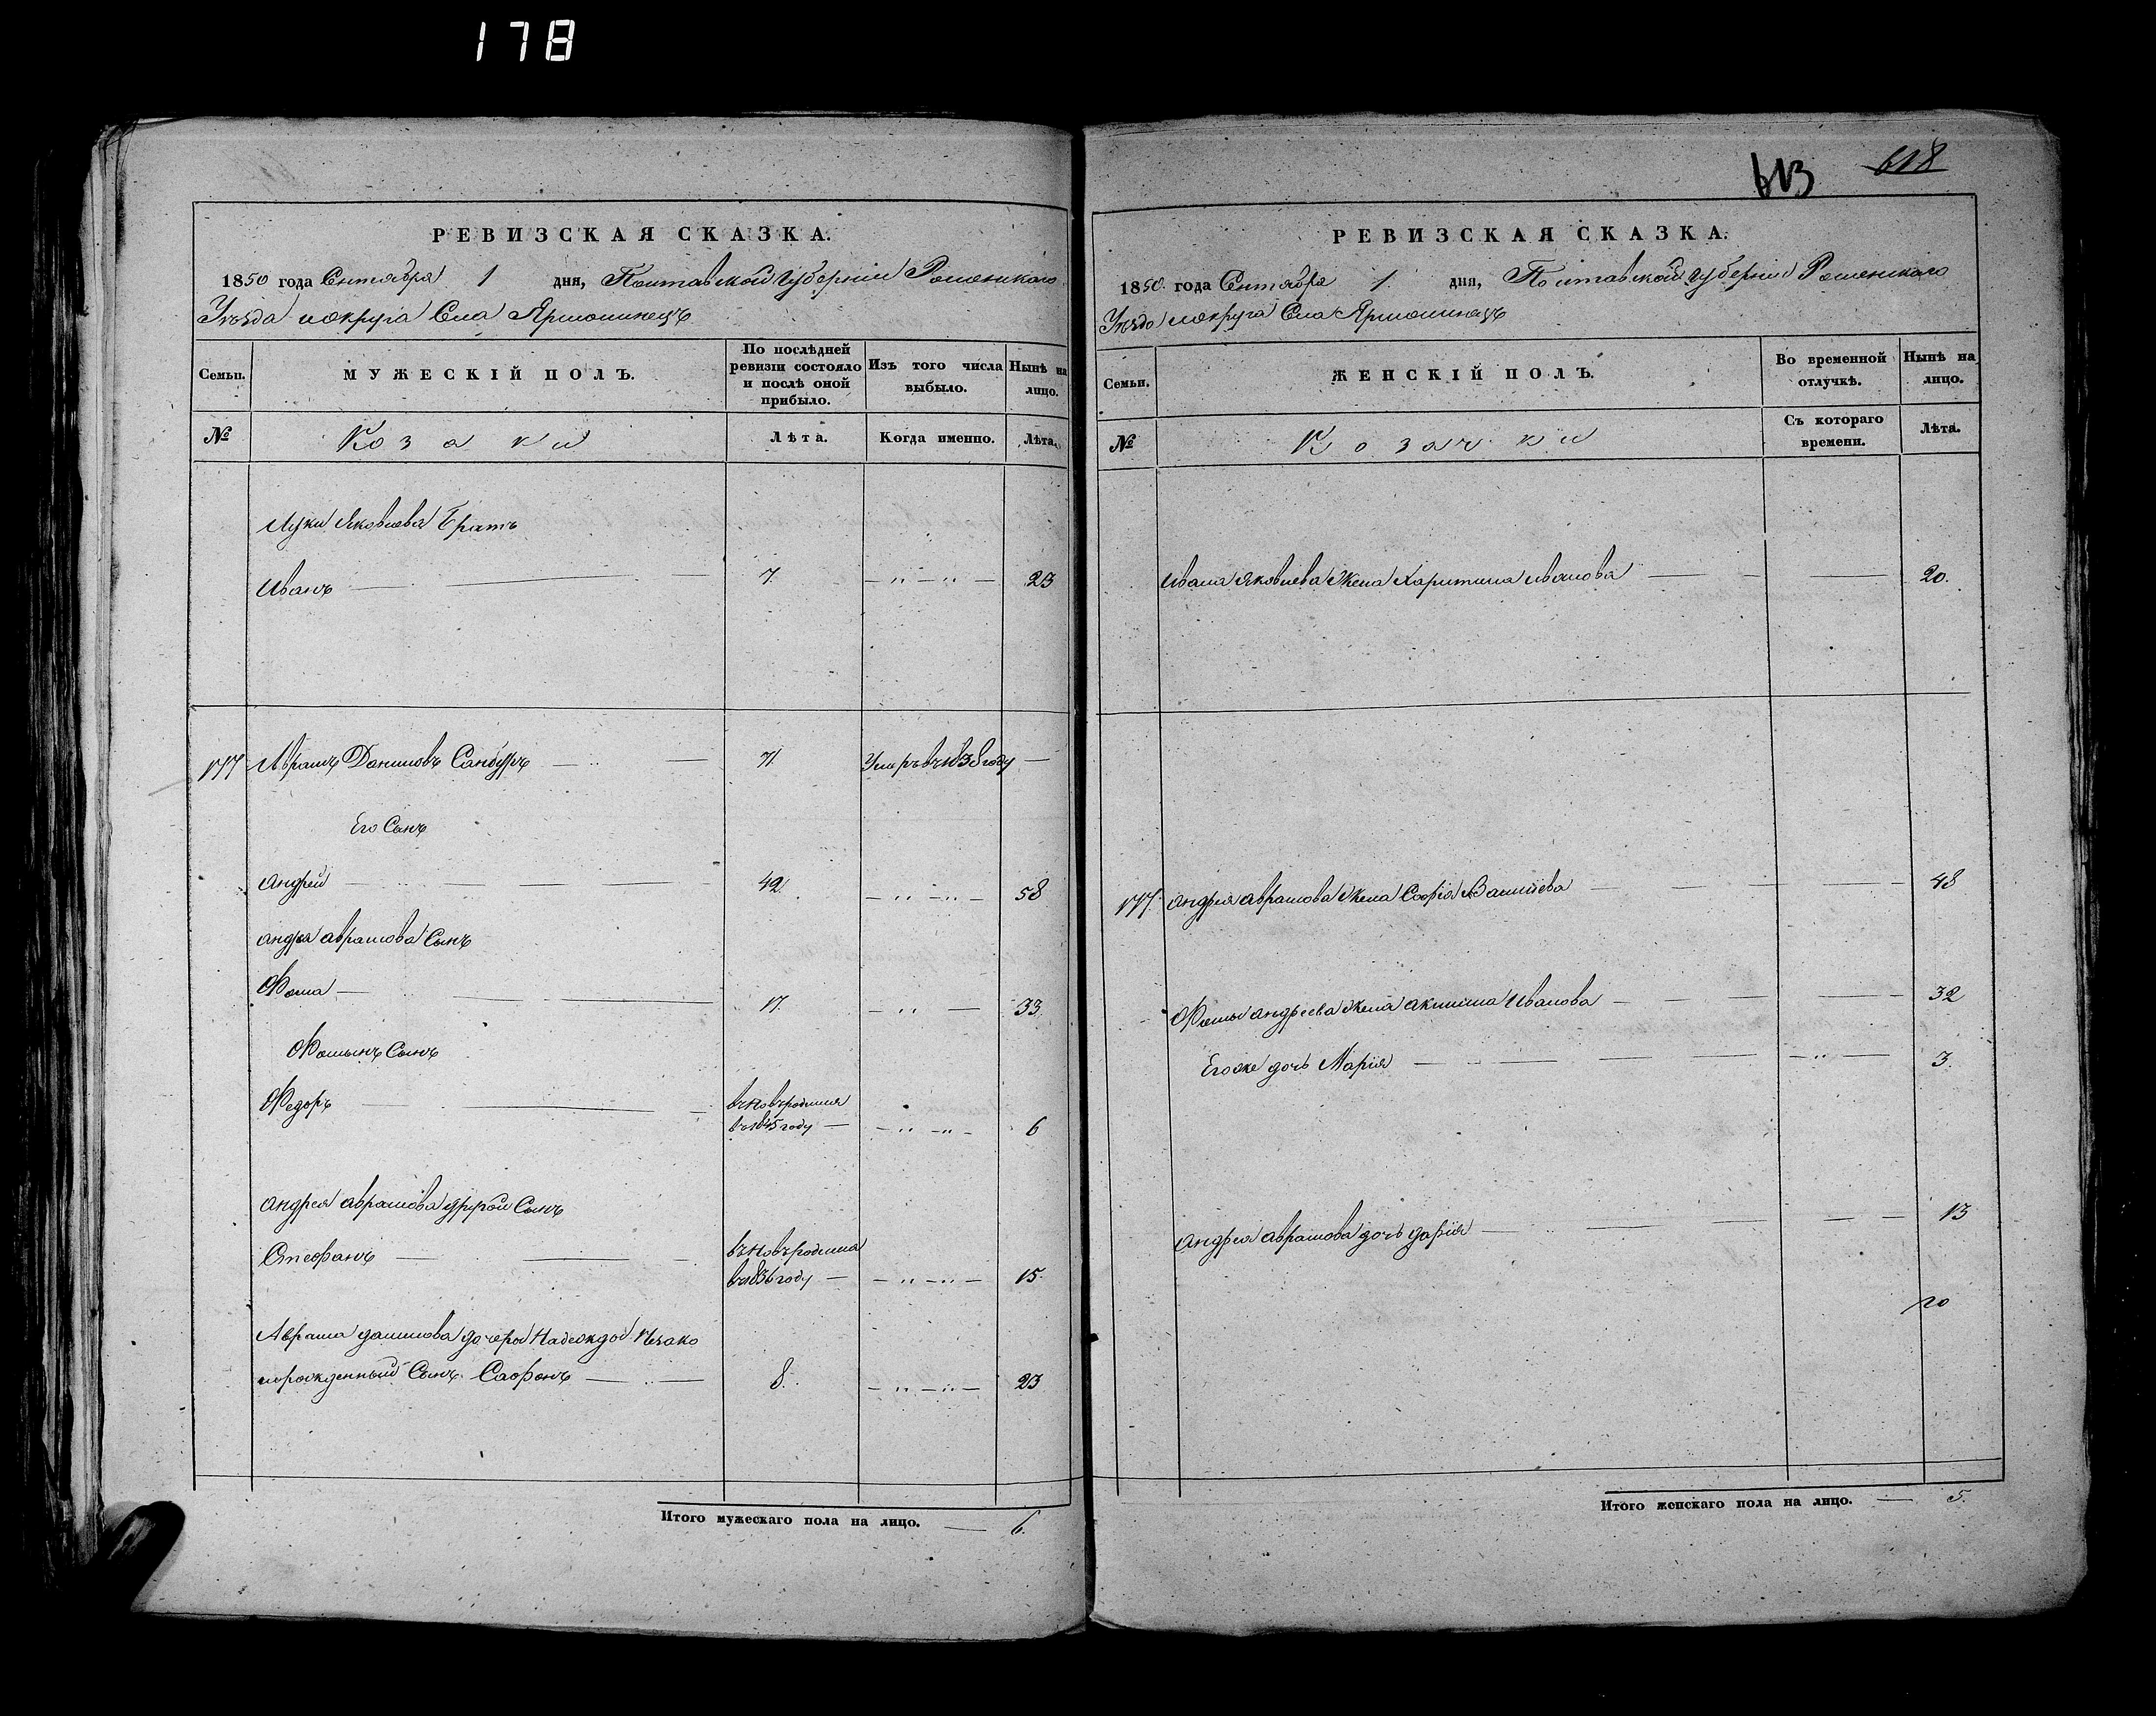 178
РЕВИЗСКАЯ СКАЗКА.
1850 года Сентября 1 дня, Полтавской Губернии Роменскаго
Уезда и округа Села Ярмолинецъ
Семьи. МУЖЕСКІЙ ПОЛЪ. По послѣдней ревизіи состояло и послѣ оной прибыло. Изъ того числа выбыло. Нынѣ на лицо.
№ Козаки Лѣта. Когда именно. Лѣта.
Луки Яковлева Братъ
Иванъ 7. 23
Аврамъ Даниловъ Сандуръ 71. Умръ въ 1838 году
Его Сынъ
Андрей 42. 58
Андрея Аврамова Сынъ
Фома 17. 33
Фоминъ Сынъ
Федоръ вновьродился 6
въ 1845 году
Андрея Аврамова другой Сынъ
Стефанъ вновьродился
въ 1836 году 15.
Аврама Данилова дочери Надежды незако
норожденный Сынъ Сафонъ 8. 23
Итого мужескаго пола на лицо. 6.
613 618
РЕВИЗСКАЯ СКАЗКА.
1850. года Сентября 1. дня, Полтавской Губерніи Роменскаго
Уезда и округа Села Ярмолинецъ
Семьи. ЖЕНСКІЙ ПОЛЪ. Во временной отлучкѣ. Нынѣ на лицо.
№ Козачки Съ котораго времени. Лѣта.
Ивана Яковлева Жена Харитина Иванова 20.
Андрея Аврамова Жена Софія Васильева 48
Фомы Андреева Жена Акилина Иванова 32
Егоже дочь Марія 3.
Андрея Аврамова дочь Дарія 13
Итого женскаго пола на лицо. 5.